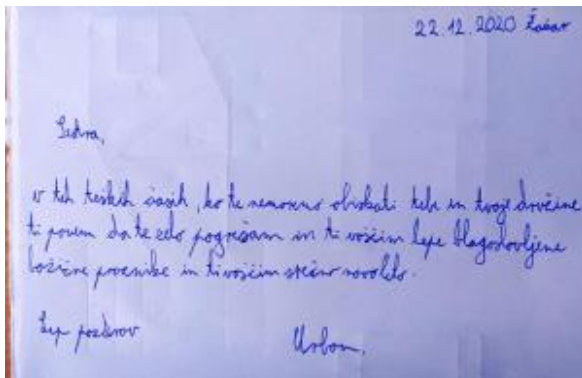 22.12.2020 Žabar
Sestra,
v teh teskih časih, ko te nemoremo obiskati tebe in tvoje družine
ti povem da te zelo pogrešam in ti voščim lepe blagoslovljene
božične praznike in ti voščim srečno novo leto.
Lep pozdrav
Urban.